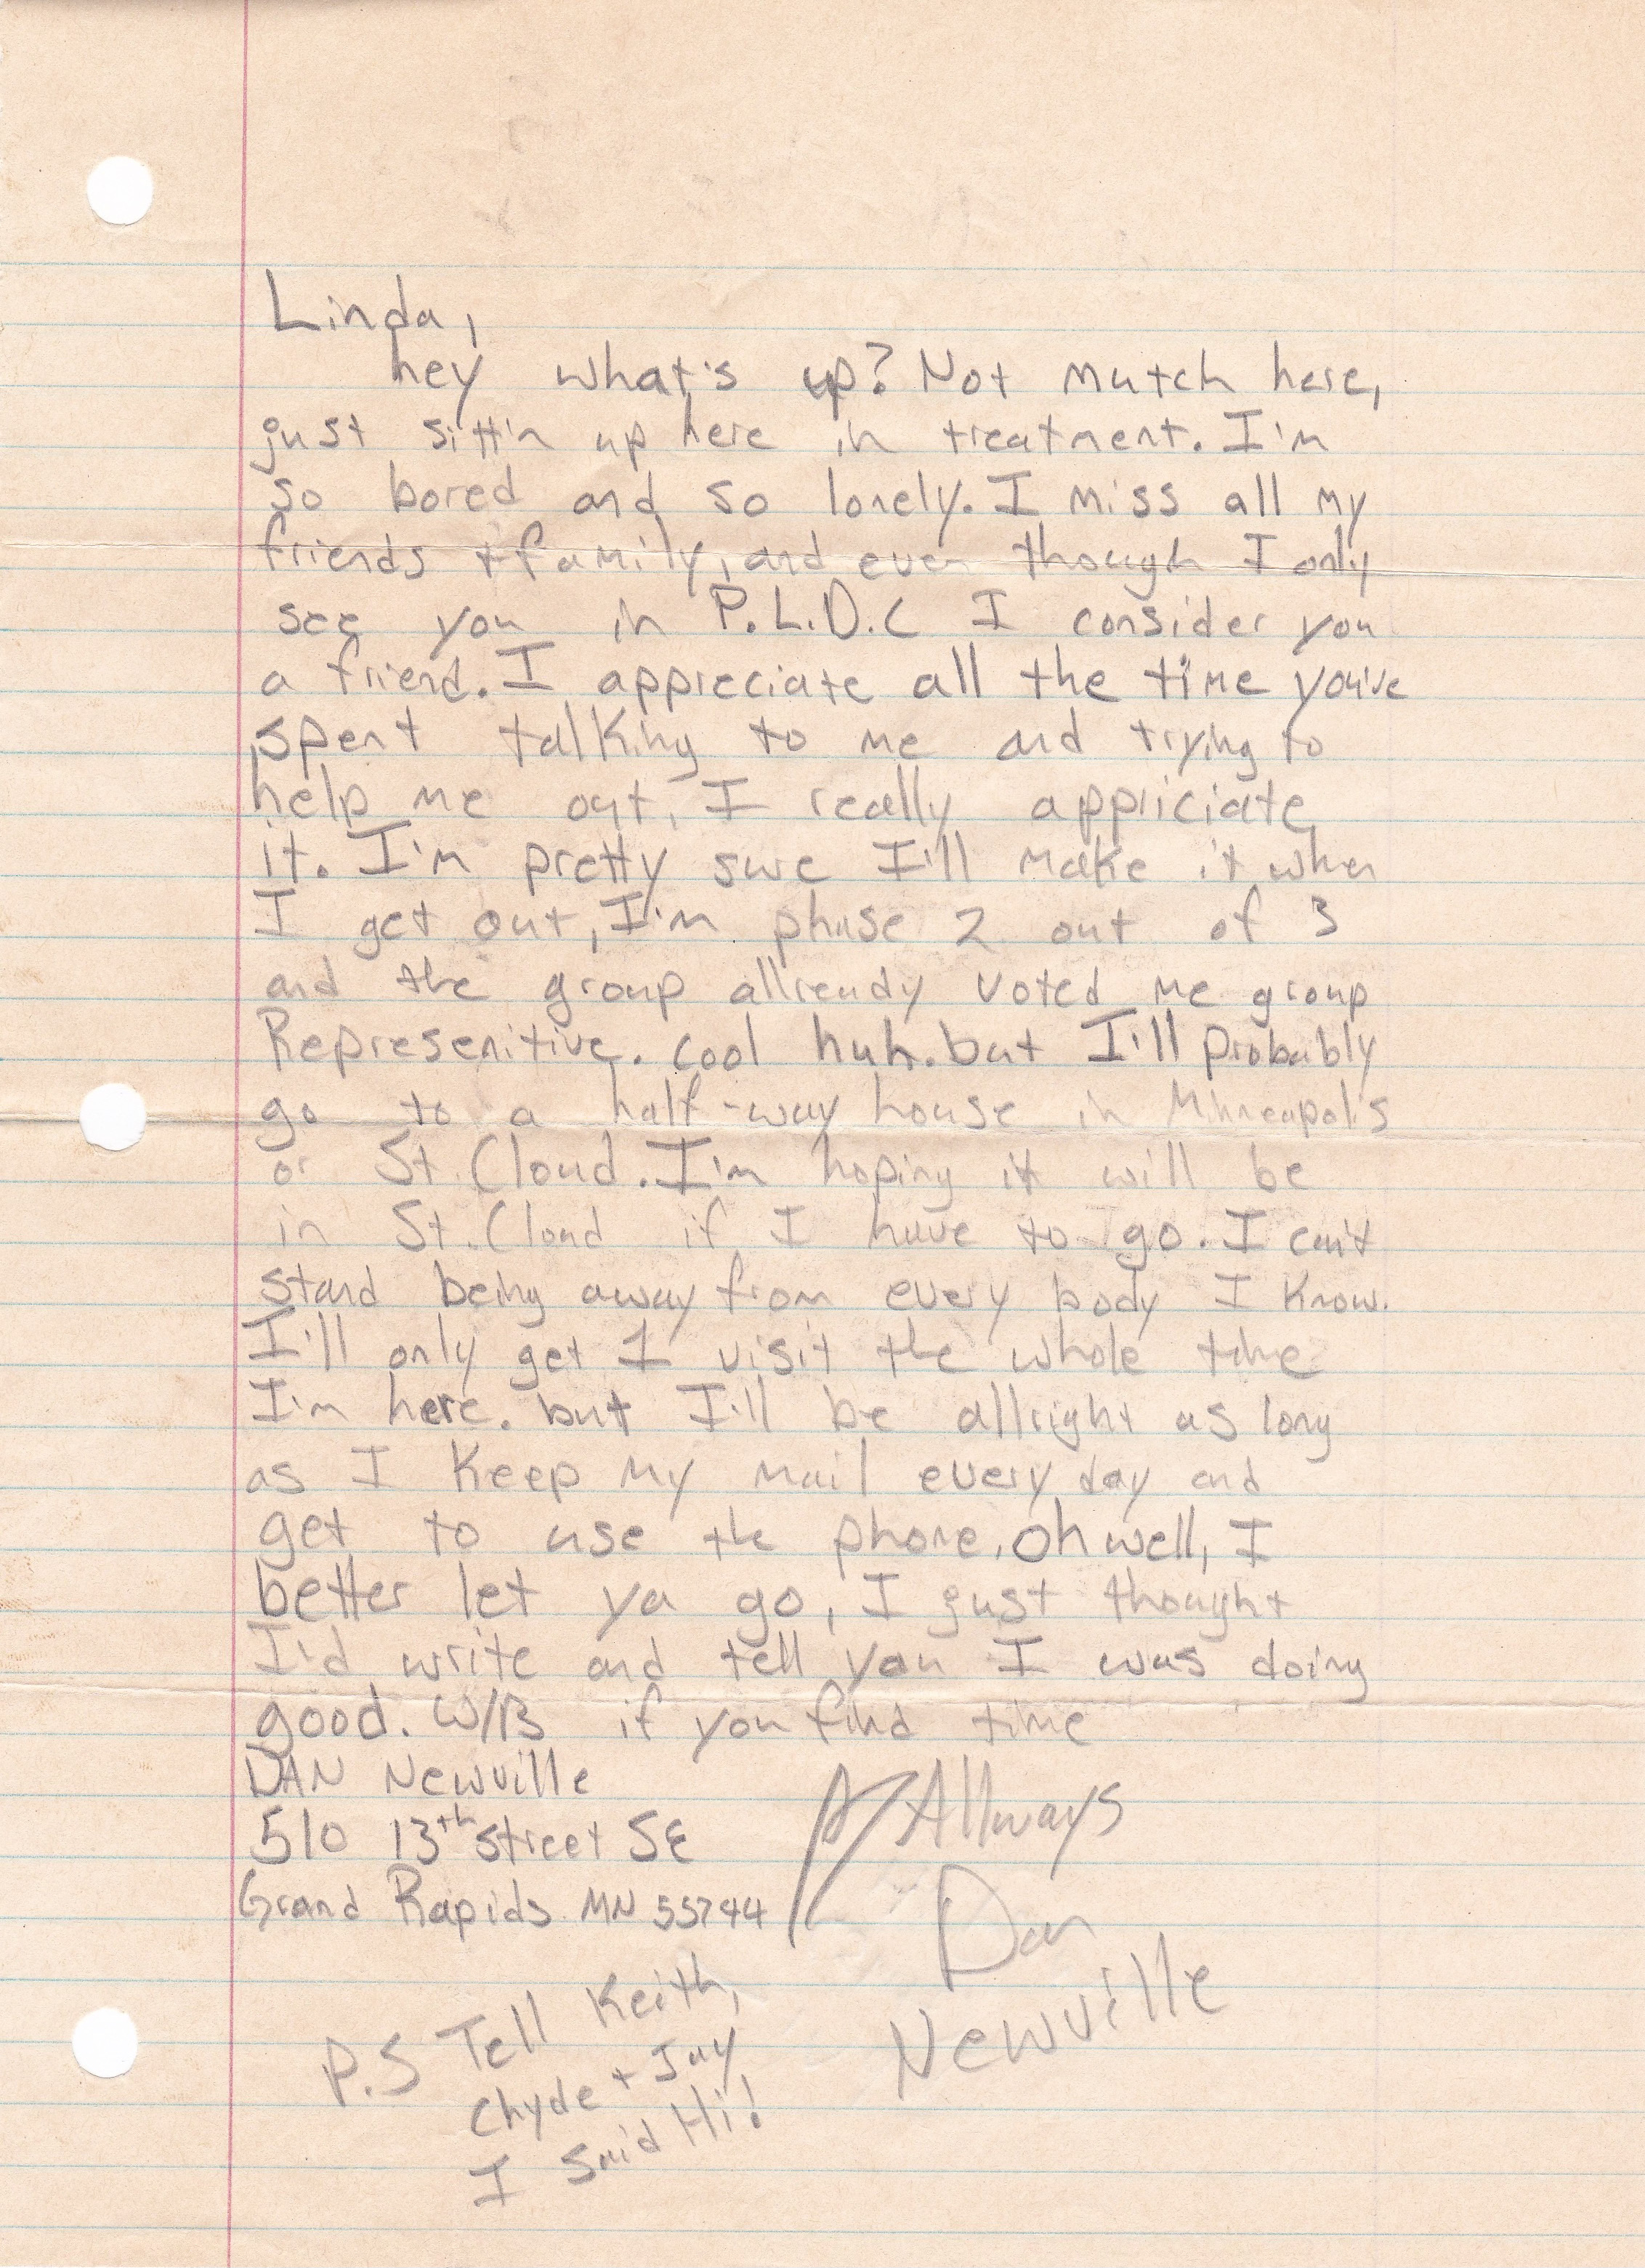 Linda,
hey what's up? Not mutch here,
just sittin up here in treatment. I'm
so bored and so lonely. I miss all my
friends + family, and even though I only
see you in P.L.D.C I consider you
a friend. I appreciate all the time you've
spent talking to me and trying to
help me out, I really appriciate
it. I'm pretty sure I'll make it when
I get out, I'm phase 2 out of 3
and the group allready voted me group
Represenitive. cool huh. but I'll probably
go to a half-way house in Minneapolis
or St. Cloud. I'm hoping it will be
in St. Cloud if I have to go. I can't
stand being away from every body I know.
I'll only get 1 visit the whole time
I'm here. but I'll be allright as long
as I keep my mail every day and
get to use the phone. oh well, I
better let ya go, I just thought
I'd write and tell you I was doing
good. W/B if you find time
DAN Newville
510 13th street SE
Grand Rapids MN 55744
Allways
Dan
Newville
P.S Tell Keith,
Chyde + Jay
I Said Hi!